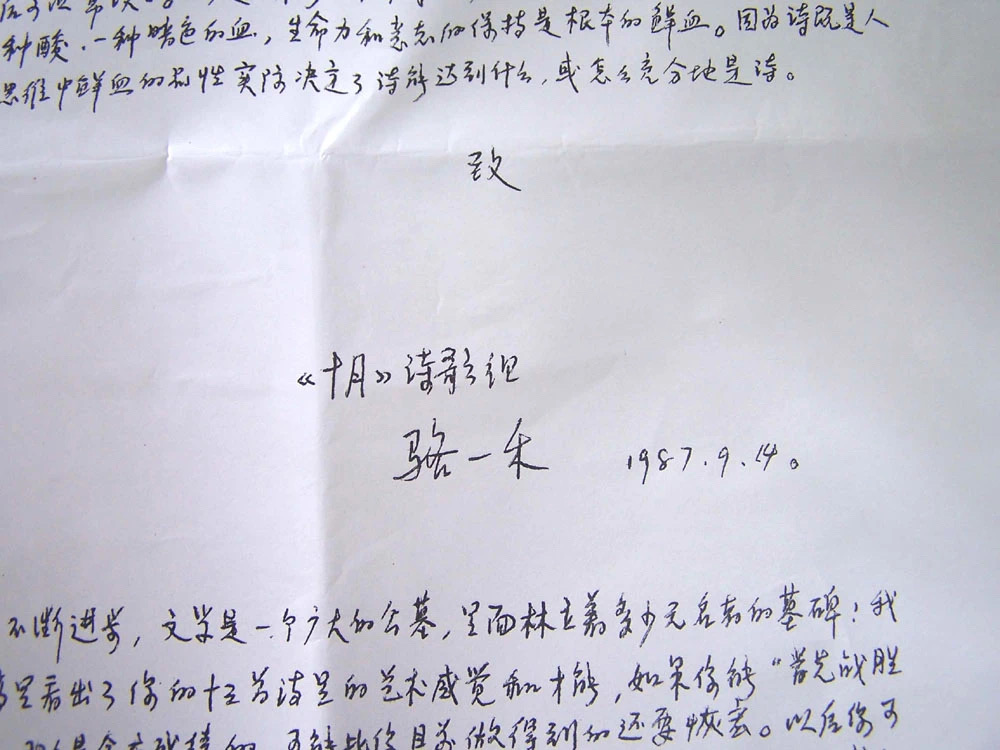 种酸、一种暗色的血，生命力和意志的保持是根本的鲜血。因为诗既是人
思维中鲜血的品性实际决定了诗能达到什么，或怎么充分地是诗。
致
《十月》诗歌组
骆一禾 1987.9.14。
不断进步，文学是一个广大的公墓，里面林立着多少无名者的墓碑！我
里看出了你的十三首诗里的艺术感觉和才能，如果你能“首先战胜
可能比你目前做得到的还要恢宏。以后你可